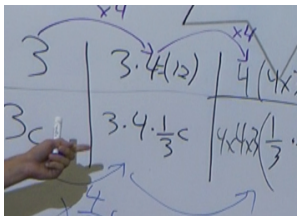 x4
x4
3
3·4=(12)
4(4x3
3c
3·4·1/3c
4x4x3(1/3·
x4/